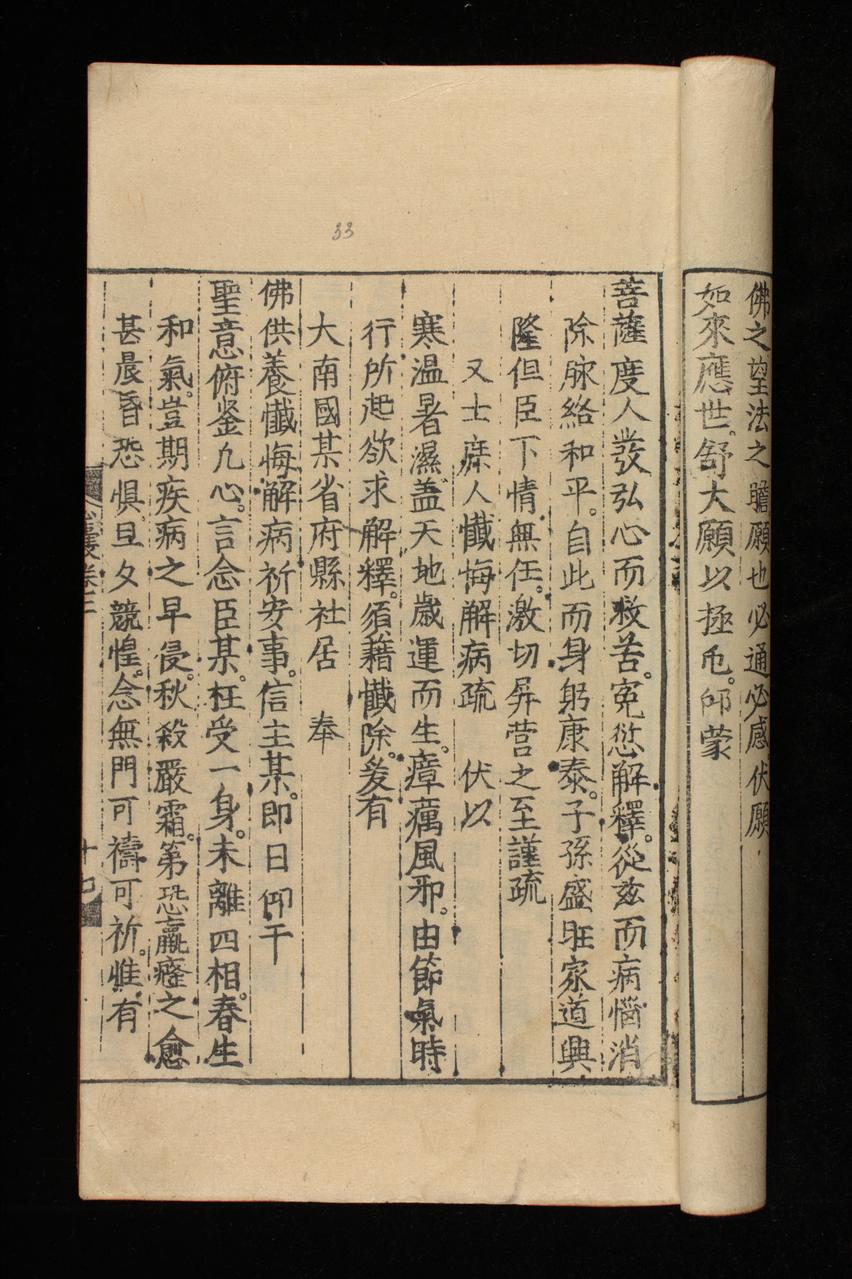 佛之望法之瞻願也必通必感伏願
如來應世。舒大願以拯危。卬蒙
33
菩薩度人發弘心而救苦。冤愆解釋。從玆而病惱消
除脉絡和平。自此而身躬康泰。子孫盛旺家道興
隆但臣下情無任。激切屏营之至謹疏
又士庶人懺悔解病疏 伏以
寒温暑濕盖天地歲運而生。瘴癘風邪。由節氣時
行所起欲求解釋。須藉懺除。爰有
大南國某省府縣社居 奉
佛供養懺悔解病祈安事。信主某。即日仰干
聖意俯鉴凢心。言念臣某。枉受一身。未離四相。春生
和氣。豈期疾病之早侵。秋殺嚴霜。第恐羸癃之愈
甚晨昏恐惧。旦夕競惶。念無門可禱可祈。惟有
卷二